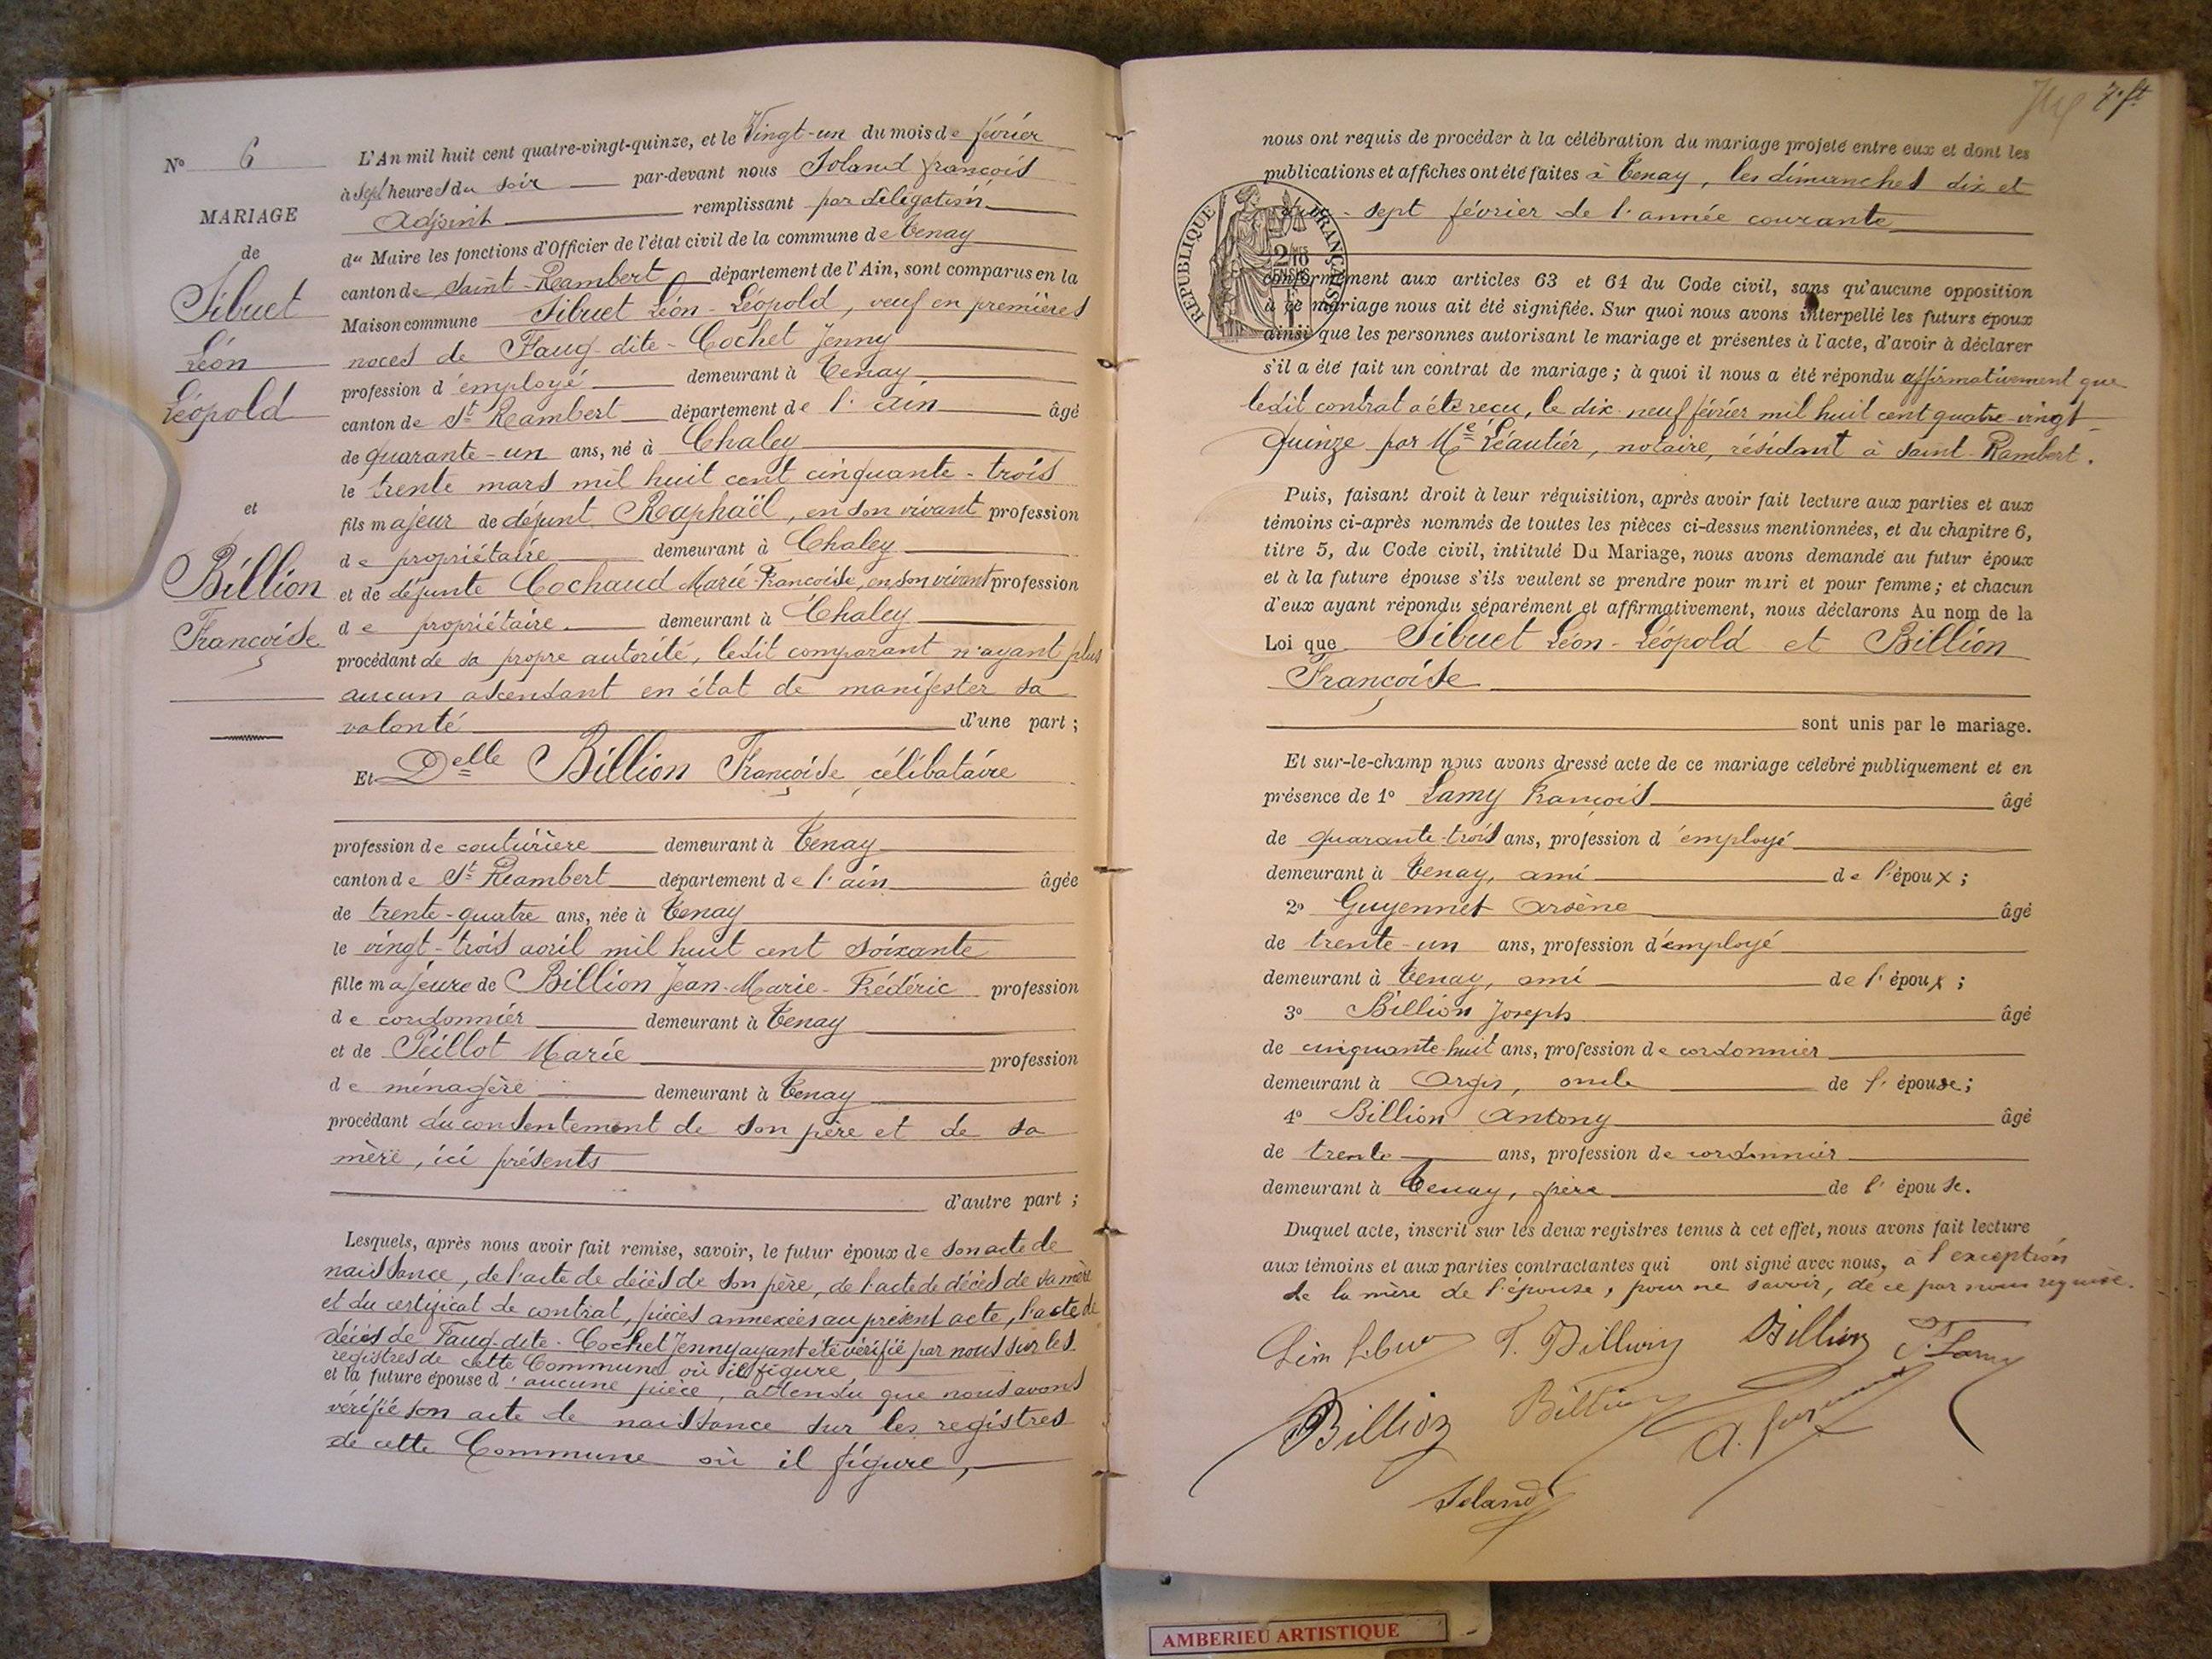 N° 6
MARIAGE
de
Sibuet
Léon
Léopold
et
Billion
Françoise
L'An mil huit cent quatre-vingt-quinze, et le Vingt-un du mois de février
à sept heures du soir par-devant nous Soland françois
Adjoint remplissant par délégation
du Maire les fonctions d'Officier de l'état civil de la commune de Tenay
canton de Saint-Rambert département de l'Ain, sont comparus en la
Maison commune Sibuet Léon-Léopold, veuf en premières
noces de Faug-dite-Cochet Jenny
profession d'employé demeurant à Tenay
canton de St Rambert département de l'ain âgé
de quarante-un ans, né à Chaley
le trente mars mil huit cent cinquante-trois
fils majeur de défunt Raphaël, en son vivant profession
de propriétaire demeurant à Chaley
et de défunte Cochaud Marie-Françoise, en son vivant profession
de propriétaire demeurant à Chaley
procédant de sa propre autorité, ledit comparant n'ayant plus
aucun ascendant en état de manifester sa
volonté d'une part;
Et Delle Billion Françoise, célibataire
profession de couturière demeurant à Tenay
canton de St Rambert département de l'ain âgée
de trente-quatre ans, née à Tenay
le vingt-trois avril mil huit cent soixante
fille majeure de Billion Jean-Marie-Frédéric profession
de cordonnier demeurant à Tenay
et de Peillot Marie profession
de ménagère demeurant à Tenay
procédant du consentement de son père et de sa
mère, ici présents
d'autre part;
Lesquels, après nous avoir fait remise, savoir, le futur époux de son acte de
naissance, de l'acte de décès de son père, de l'acte de décès de sa mère
et du certificat de contrat, pièces annexées au présent acte, l'acte de
décès de Faug-dite-Cochet Jenny ayant été vérifié par nous sur les
registres de cette Commune où il figure,
et la future épouse d'aucune pièce, attendu que nous avons
vérifié son acte de naissance sur les registres
de cette Commune où il figure,
nous ont requis de procéder à la célébration du mariage projeté entre eux et dont les
publications et affiches ont été faites à Tenay, les dimanches dix et
dix-sept février de l'année courante
REPUBLIQUE FRANÇAISE
conformément aux articles 63 et 64 du Code civil, sans qu'aucune opposition
à ce mariage nous ait été signifiée. Sur quoi nous avons interpellé les futurs époux
ainsi que les personnes autorisant le mariage et présentes à l'acte, d'avoir à déclarer
s'il a été fait un contrat de mariage; à quoi il nous a été répondu affirmativement que
ledit contrat a été reçu, le dix-neuf février mil huit cent quatre-vingt
quinze par Me Léautier, notaire, résidant à Saint-Rambert.
Puis, faisant droit à leur réquisition, après avoir fait lecture aux parties et aux
témoins ci-après nommés de toutes les pièces ci-dessus mentionnées, et du chapitre 6,
titre 5, du Code civil, intitulé Du Mariage, nous avons demandé au futur époux
et à la future épouse s'ils veulent se prendre pour mari et pour femme; et chacun
d'eux ayant répondu séparément et affirmativement, nous déclarons Au nom de la
Loi que Sibuet Léon-Léopold et Billion
Françoise
sont unis par le mariage.
Et sur-le-champ nous avons dressé acte de ce mariage célébré publiquement et en
présence de 1° Lamy François âgé
de quarante-trois ans, profession d'employé
demeurant à Tenay, ami de l'époux;
2° Guyennet Arsène âgé
de trente-un ans, profession d'employé
demeurant à Tenay, ami de l'époux;
3° Billion Joseph âgé
de cinquante-huit ans, profession de cordonnier
demeurant à Argis, oncle de l'épouse;
4° Billion Antony âgé
de trente ans, profession de cordonnier
demeurant à Tenay, frère de l'épouse.
Duquel acte, inscrit sur les deux registres tenus à cet effet, nous avons fait lecture
aux témoins et aux parties contractantes qui ont signé avec nous, à l'exception
de la mère de l'épouse, pour ne savoir, de ce par nous requise.
Léon Sibuet F. Billion Billion F. Lamy
Billion Billion
Soland
AMBERIEU ARTISTIQUE